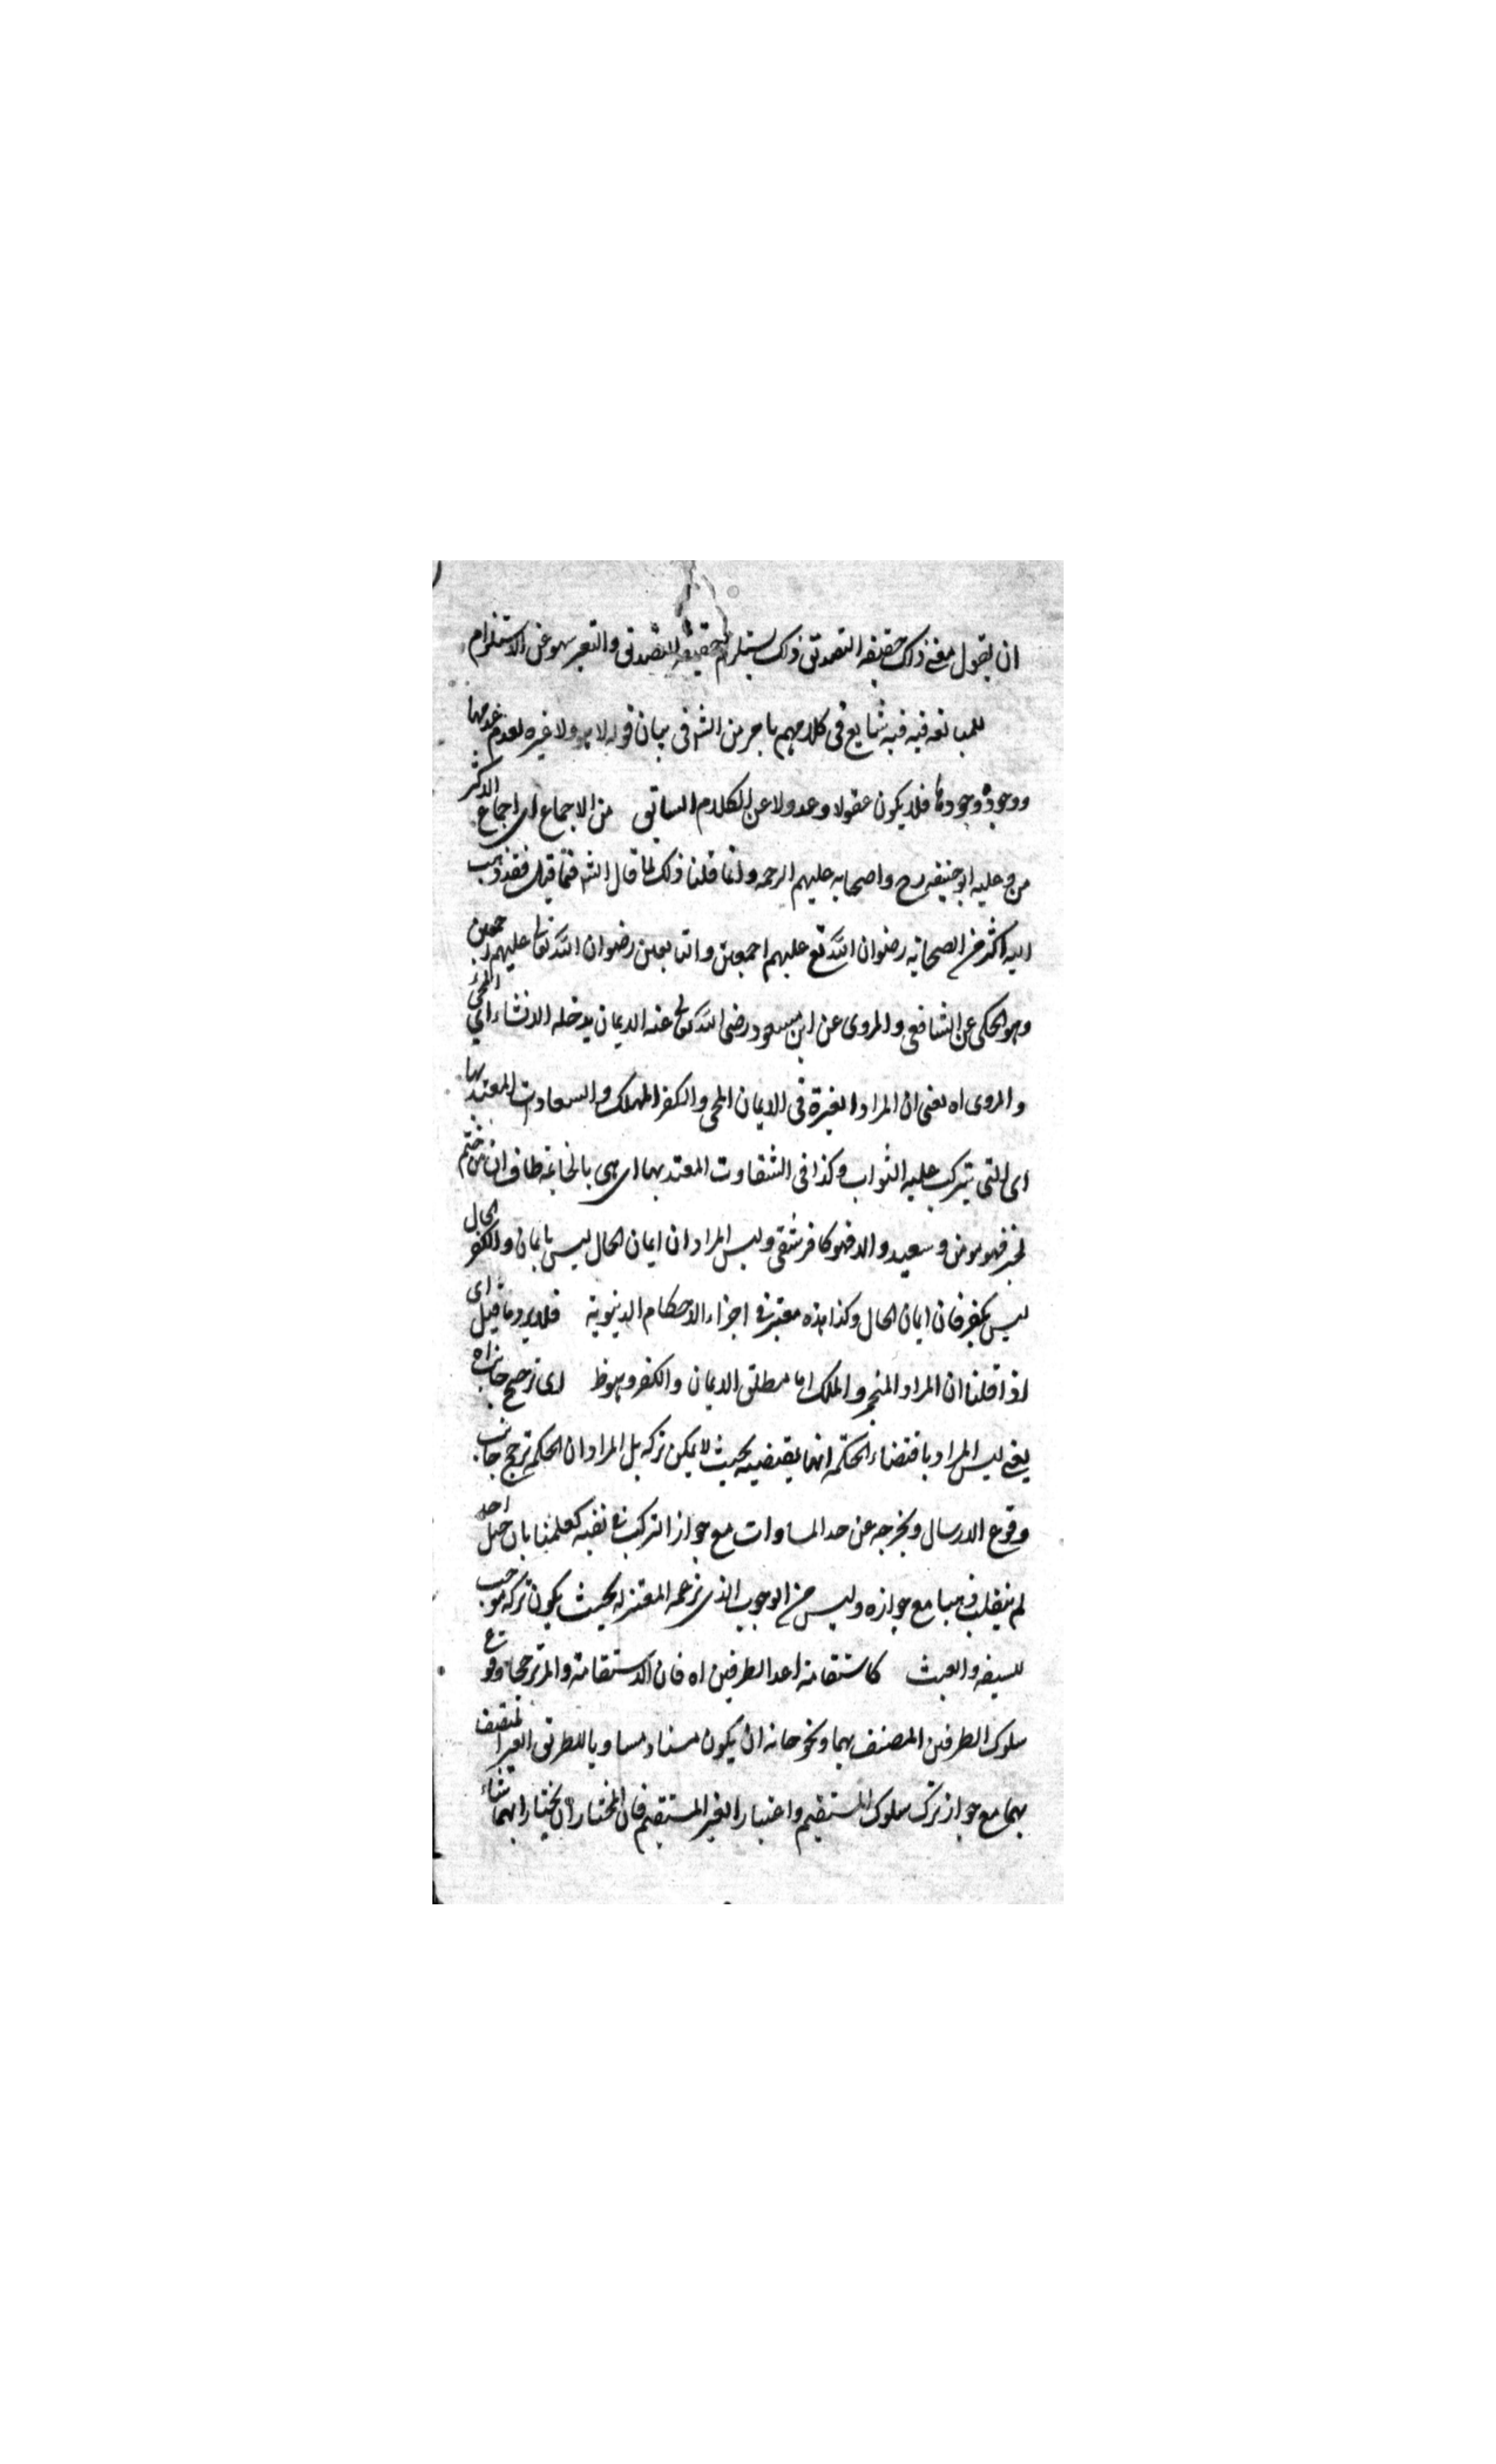 ان يقول معنى ذلك حقيقة التصديق ذلك يستلزم حقيقة التصديق والتعبير بهو عن الاستلزام
للمبالغة فيه شايع في كلامهم ما مر من الش في بيان قوله لا هو ولا غيره لعدم عدمهما
ووجوده وجودها فلا يكون عدولا عن الكلام السابق من الاجماع اى اجماع الاكثر
من وعليه ابو حنيفه رح واصحابه عليهم الرحمه وانما قلنا ذلك لما قال الش فقد ذهب
اليه اكثر من الصحابه رضوان الله تع عليهم اجمعين والتابعين رضوان الله تعالى عليهم اجمعين
وهو المحكى عن الشافعى والمروى عن ابن مسعود رضى الله تعالى عنه الايمان يدخله الانشاء اى المحكى
والمروى اه يعنى ان المراد العبرة فى الايمان المنجى والكفر المهلك والسعادت المعتد بها
اى التى يترتب عليه الثواب وكذا فى الشقاوت المعتد بها اى هى بالخاتمة من ختم
بخير فهو مومن وسعيد والا فهو كافر شقى وليس المراد ان ايمان الحال ليس بايمان والكفر الحال
ليس بكفر فان ايمان الحال وكذا هذه معتبر فى اجراء الاحكام الدنيوية فلا يرد ما قيل اى
اذا قلنا ان المراد المنجى والمهلك اما مطلق الايمان والكفر وهو ظ اى ترجح جانب
يعنى ليس المراد باقتضاء الحكمة انها يقتضيه بحيث لا يمكن تركه بل المراد ان الحكمة ترجح جانب
وقوع الارسال ويخرجه عن حد المساوات مع جواز الترك فى نفسه كعلمنا بان جبل احد
لم ينقلب ذهبا مع جوازه وليس من الوجوب الذى زعمه المعتزله بحيث يكون تركه موجب
للسفه والعبث كاستقامة احد الطرفين اه فان الاستقامة وقوع
سلوك الطرفين المتصف بهما ان يكون مساويا للطريق الغير المتصف
بهما مع جواز ترك سلوك المستقيم واختيار الغير المستقيم فان المختار ان يختار ايهما شاء